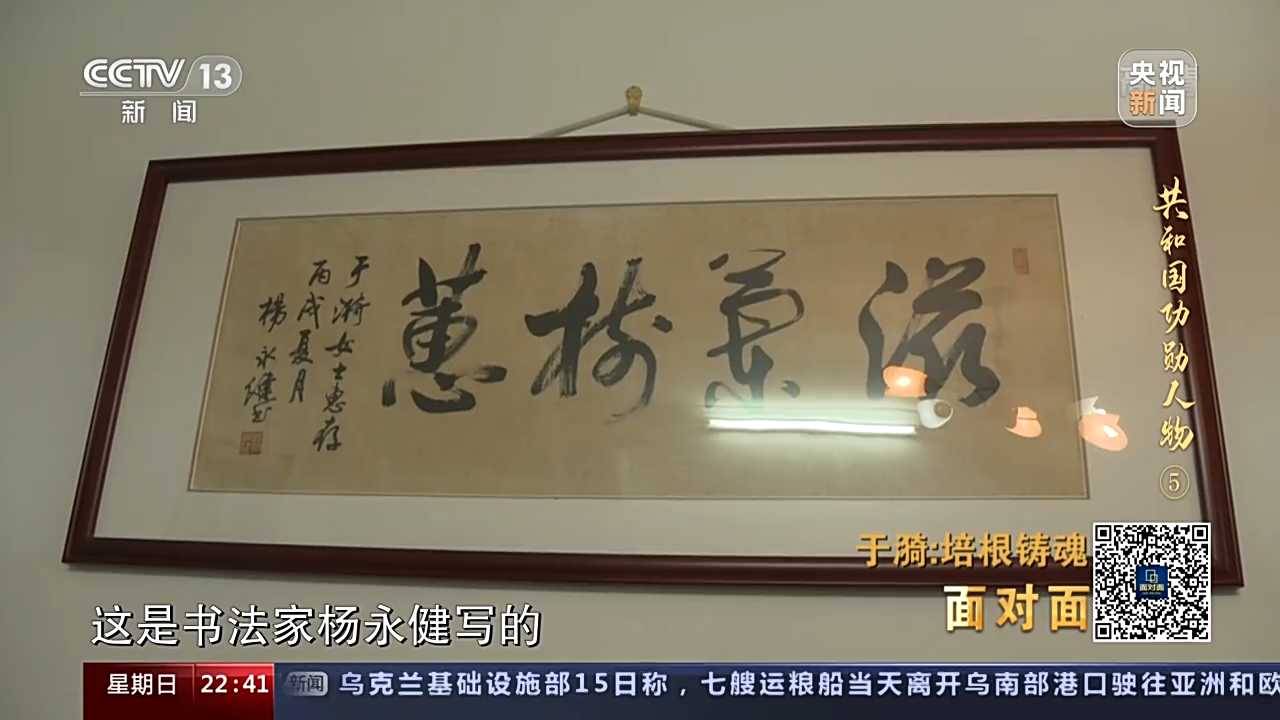 CCTV 13
新闻
央视
新闻
共和国功勋人物⑤
滋兰树蕙
于漪女士惠存
丙戌夏月
楊永健书
于漪:培根铸魂
面对面
面对面
这是书法家杨永健写的
星期日 22:41 新闻 乌克兰基础设施部15日称，七艘运粮船当天离开乌南部港口驶往亚洲和欧